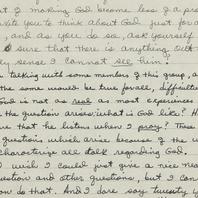 t of making God become less of a pro
vite you to think about God just for a
, and as you do so, ask yourself
sure that there is anything out
ly sense I cannot see him.
talking with some members of this group, a
the same would be true for all, difficultie
God is not as real as most experiences
the question arises: what is God like? H
re that he listens when I pray? These
questions which arise because of the
characterize all talk regarding God.
I wish I could just give a nice neat
uestion and other questions, but I can
ow do that. And I dare say twenty y